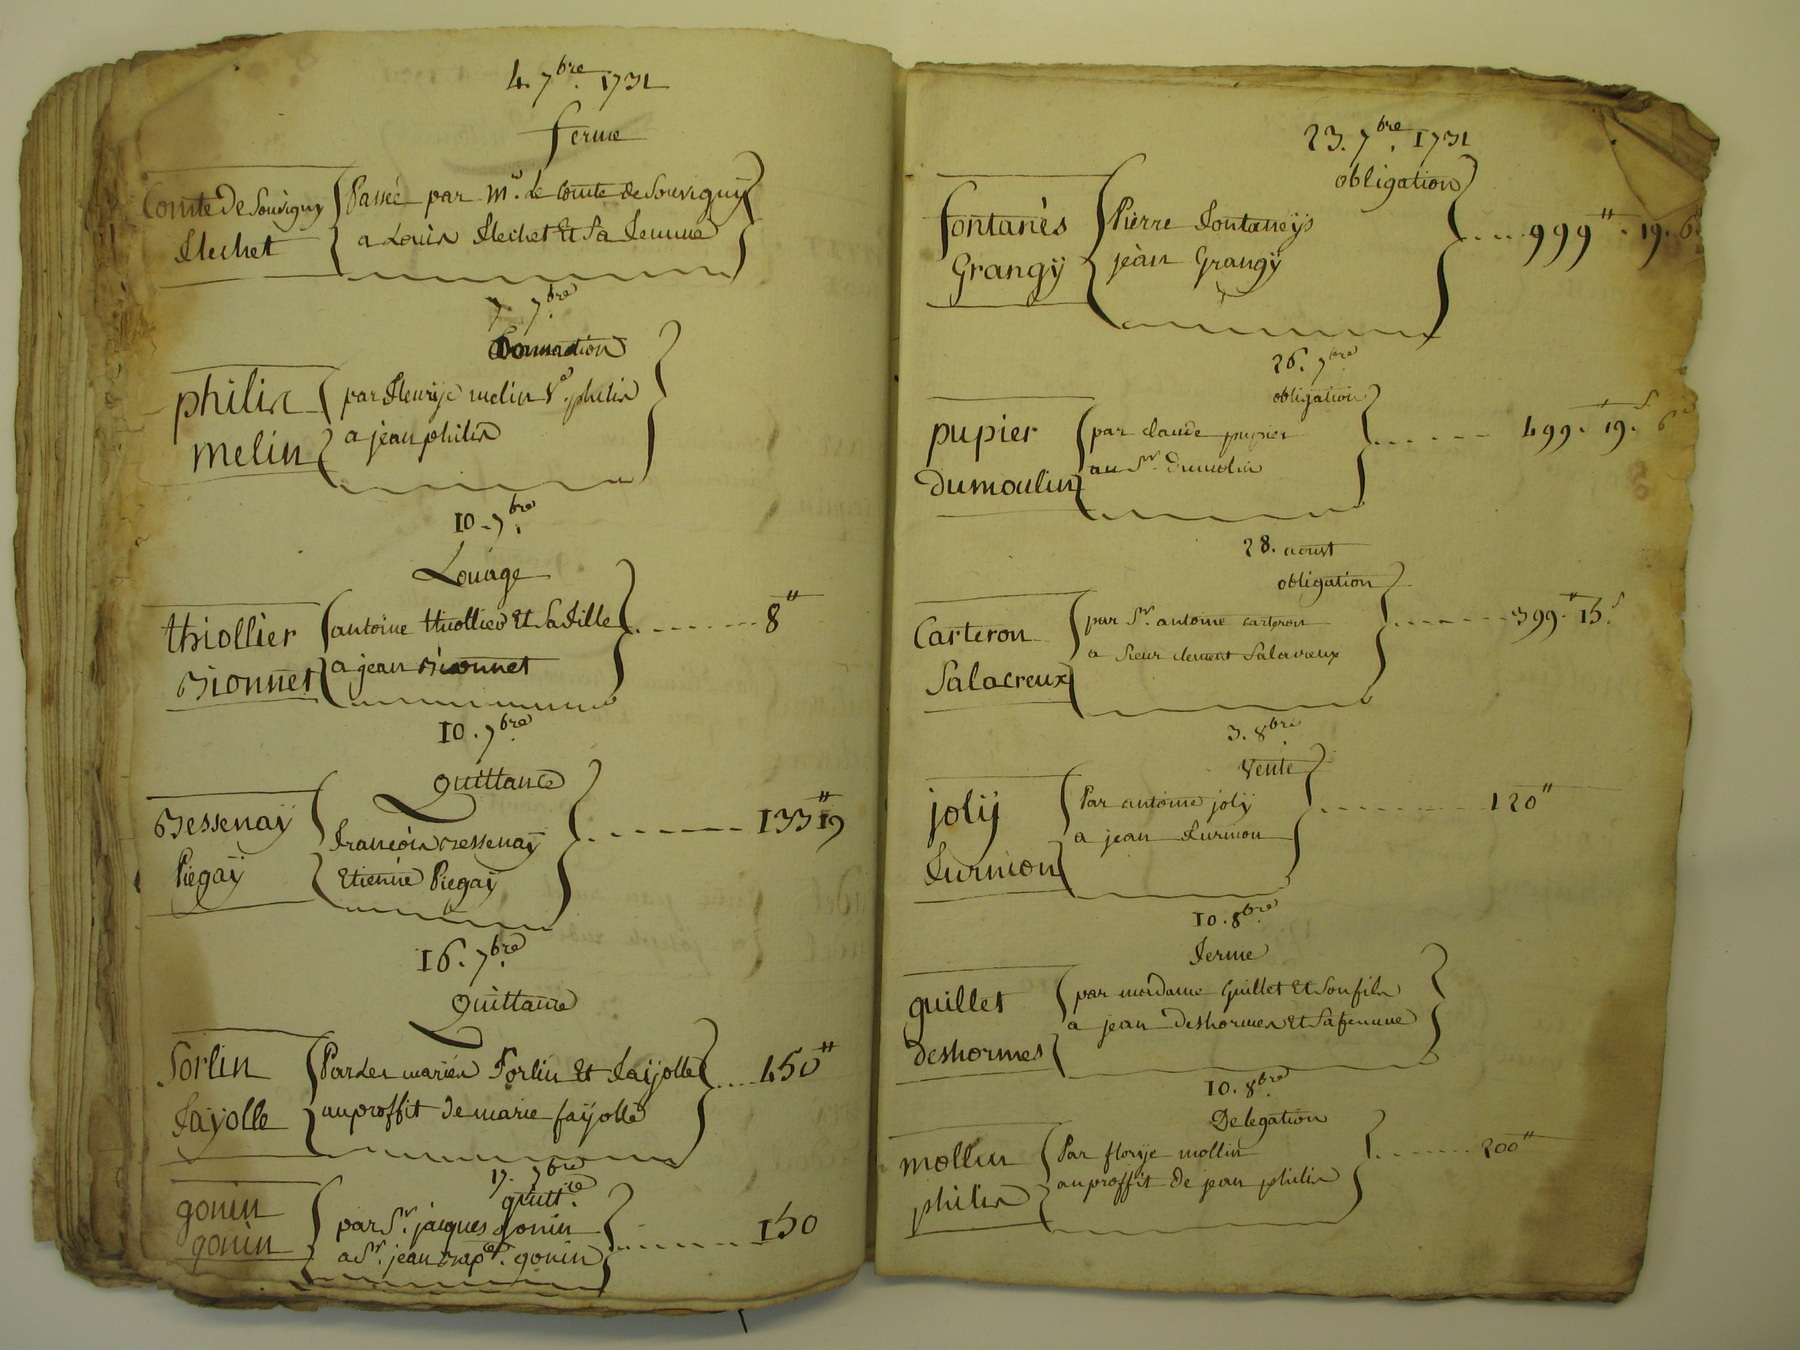 4. 7bre. 1731
ferme
Comte de Souvigny
flechet
Passée par mr. le Comte de Souvigny
a Louis flechet Et Sa femme
7. 7bre
Donnation
philis
melin
par fleurÿe melin Ve. philis
a jean philis
10. 7bre.
Loüage
thiollier
Bionnet
antoine thiollier Et Sa fille
a jean Bionnet
8 tt
10. 7bre.
Quittance
Bessenaÿ
Piegaÿ
francois Bessenaÿ
Etienne Piegaÿ
133 tt 19
16. 7bre.
Quittance
Sorlin
faÿolle
Par les mariés Sorlin Et faÿolle
au proffit de marie faÿolle
450 tt
17. 7bre
quittce.
gonin
gonin
par Sr. jacques gonin
a Sr. jean bapte. gonin
150
23. 7bre. 1731
obligation
fontanès
Grangÿ
Pierre fontaneÿs
jean Grangÿ
999 tt. 19. 6
26. 7bre
obligation
pupier
Dumoulin
par claude pupier
au Sr. Dumolin
499 tt. 19 s. 6 d
28. aoust
obligation
Carteron
Salacreux
par Sr. antoine carteron
a Sieur clement Salacreux
399 tt. 15 s.
3. 8bre
Vente
jolÿ
furnion
Par antoine jolÿ
a jean furnion
120 tt
10. 8bre.
ferme
guillet
deshormes
par madame Guillet Et Son fils
a jean Deshormes Et Sa femme
10. 8bre.
Delegation
mollin
philis
Par florÿe mollin
au proffit de jean philis
200 tt